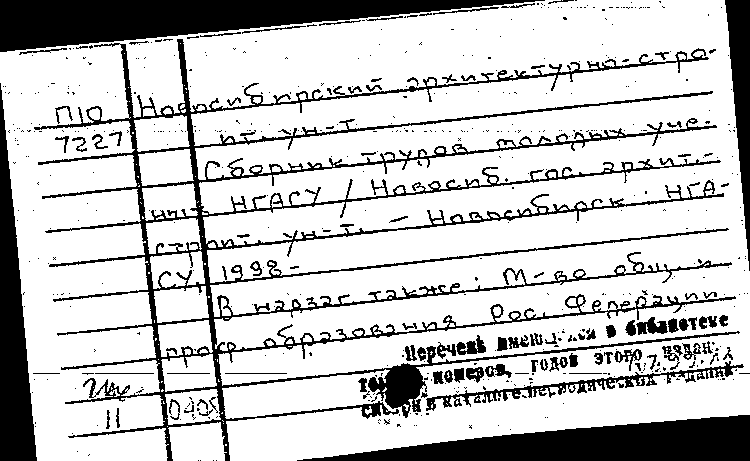 П10 Новосибирский архитектурно-стро-
7227 ит. ун-т
Сборник трудов молодых уче-
ных НГАСУ / Новосиб. гос. архит.-
строит. ун-т. - Новосибирск : НГА-
СУ, 1998-
В надзаг также: М-во общ. и
проф. образования Рос. Федерации
Перечень имеющихся в библиотеке
номеров, годов этого издан.
смотри в каталоге периодических изданий
11 0405